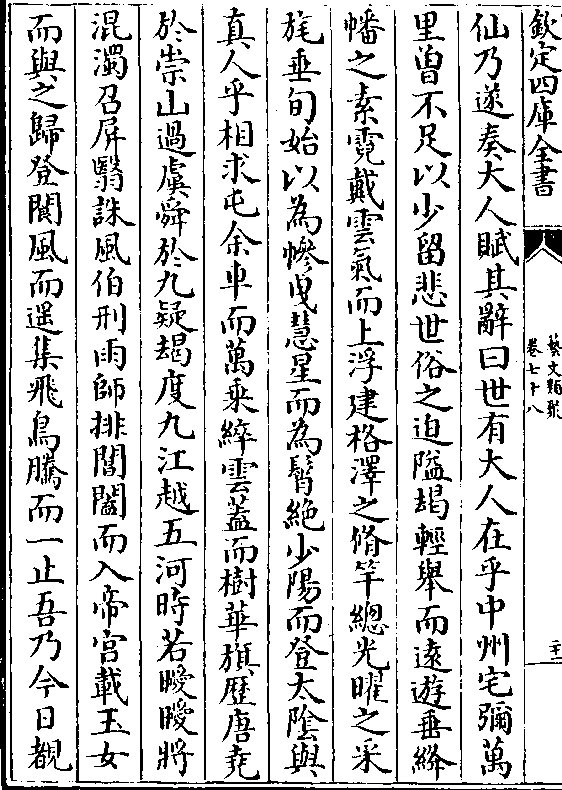 欽定四庫全書
藝文類聚
卷七十八
二十一
仙乃遂奏大人賦其辭曰世有大人在乎中州宅彌萬
里曽不足以少留悲世俗之迫隘朅輕舉而遠遊垂絳
幡之素霓戴雲氣而上浮建格澤之脩竿總光曜之采
旄垂旬始以為幓曳慧星而為髾絶少陽而登太陰與
真人乎相求屯余車而萬乗綷雲蓋而樹華旗歴唐堯
於崇山過虞舜於九疑朅度九江越五河時若曖曖將
混濁召屏翳誅風伯刑雨師排閶闔而入帝宫載玉女
而與之歸登閬風而遥集飛鳥騰而一止吾乃今日覩